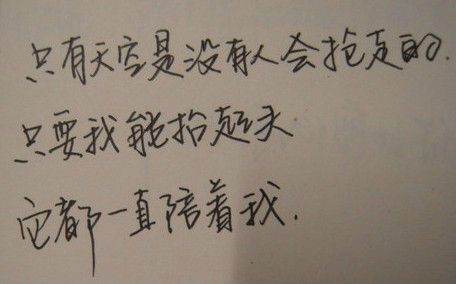 只有天空是没有人会抢走的.
只要我能抬起头
它都一直陪着我.